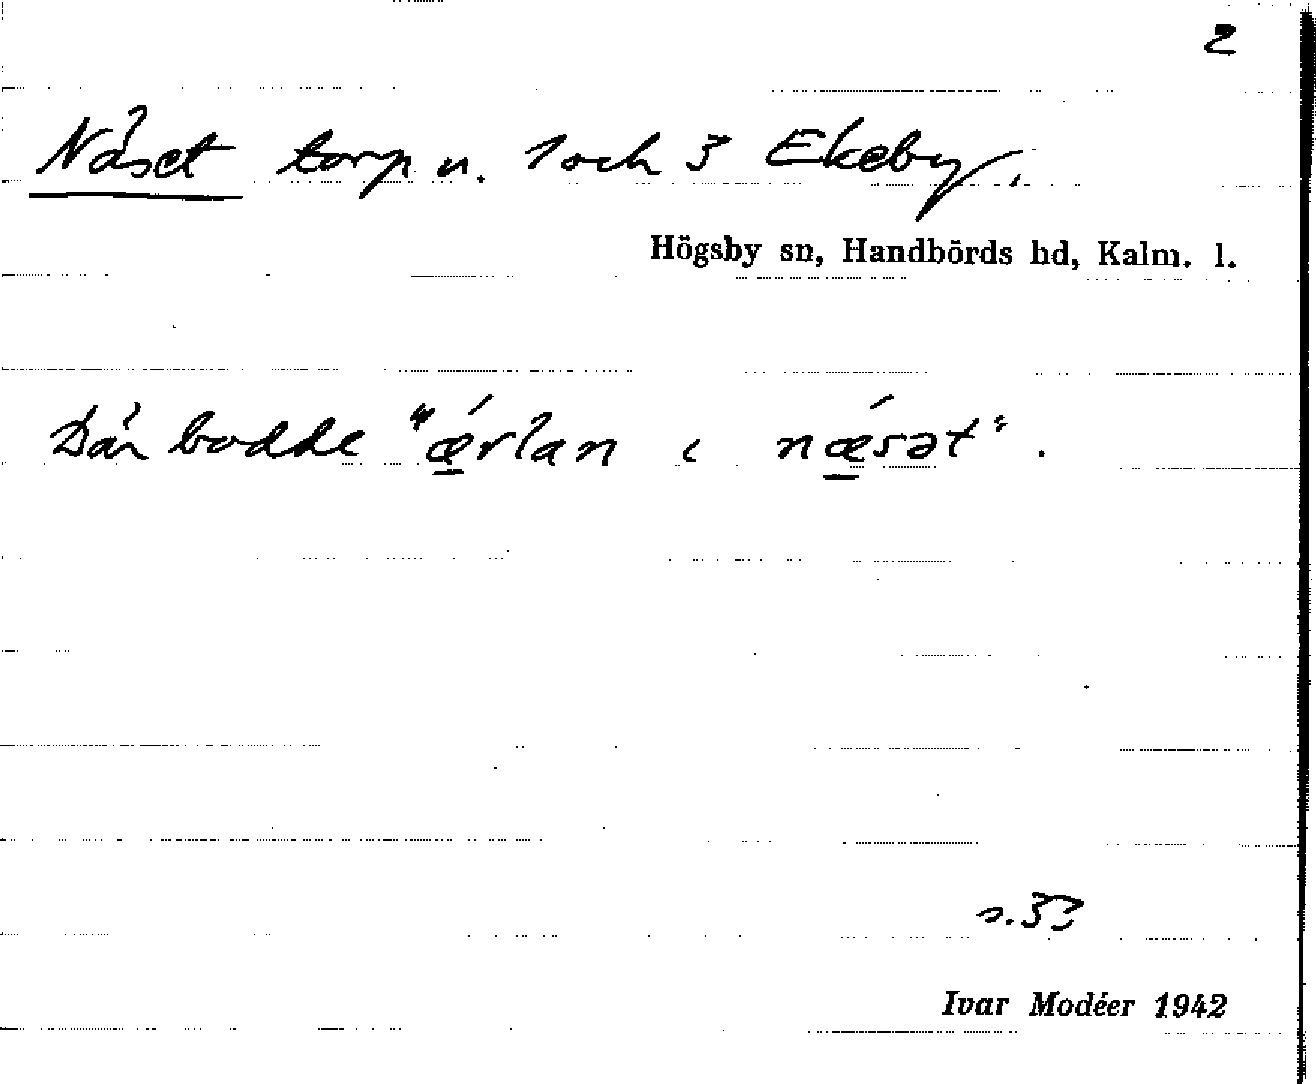 2
Näset torp u. 1 och 3 Ekeby.
Högsby sn, Handbörds hd, Kalm. l.
Där bodde "ǽ̱rlan i nǽ̱sət".
s. 33
Ivar Modéer 1942